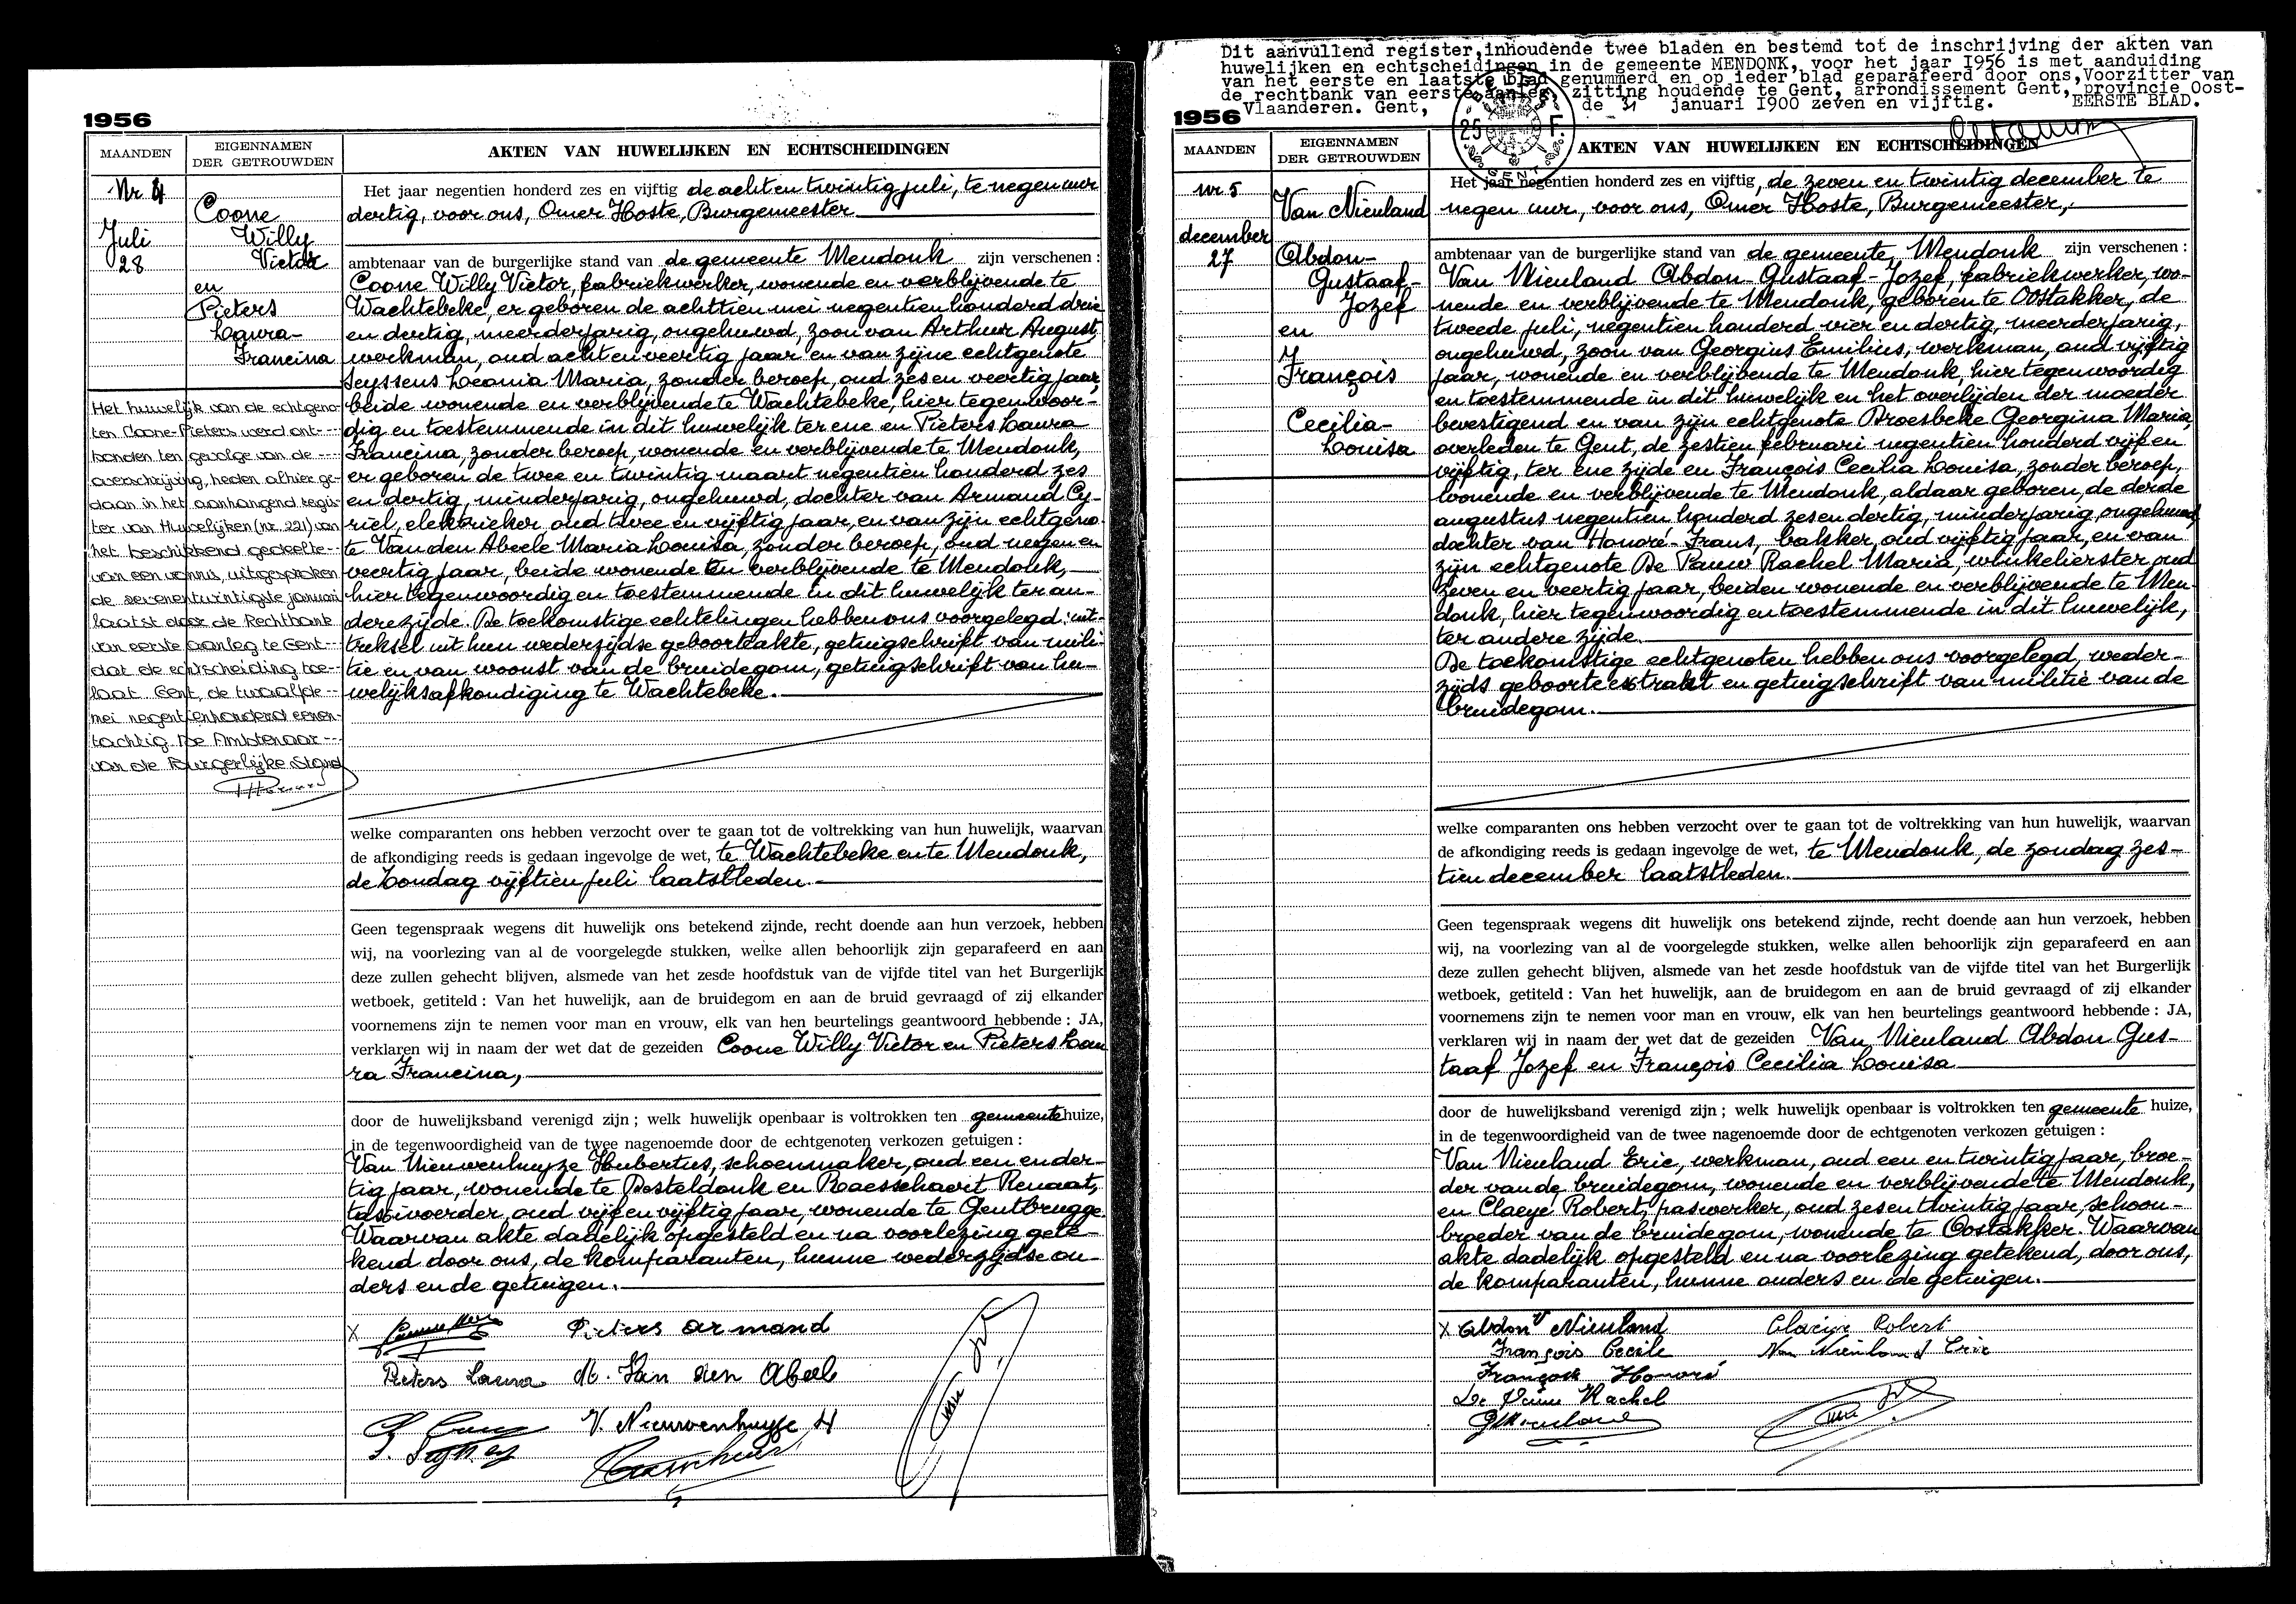 1956
MAANDEN
EIGENNAMEN
DER GETROUWDEN
AKTEN VAN HUWELIJKEN EN ECHTSCHEIDINGEN
Nr 4
Juli
28
Coone
Willy
Victor
en
Pieters
Laura-
Francina
Het huwelijk van de echtgeno-
ten Coone-Pieters werd ont---
bonden ten gevolge van de ---
overschrijving, heden alhier ge-
daan in het aanhangend regis-
ter van Huwelijken (nr. 221) van
het beschikkend gedeelte--
van een vonnis, uitgesproken
de zevenentwintigste januari
laatst door de Rechtbank
van eerste aanleg te Gent---
dat de echtscheiding toe---
laat. Gent, de twaalfde---
mei negentienhonderd eenen-
tachtig. De Ambtenaar---
van de Burgerlijke Stand
Het jaar negentien honderd zes en vijftig de acht en twintig juli, te negen uur
dertig, voor ons, Omer Hoste, Burgemeester
ambtenaar van de burgerlijke stand van de gemeente Mendonk zijn verschenen :
Coone Willy Victor, fabriekwerker, wonende en verblijvende te
Wachtebeke, er geboren de achttien mei negentien honderd drie
en dertig, meerderjarig, ongehuwd, zoon van Arthur August,
werkman, oud acht en veertig jaar en van zijne echtgenote
Seyssens Leonia Maria, zonder beroep, oud zes en veertig jaar,
beide wonende en verblijvende te Wachtebeke, hier tegenwoor-
dig en toestemmende in dit huwelijk ter ene en Pieters Laura
Francina, zonder beroep, wonende en verblijvende te Mendonk,
er geboren de twee en twintig maart negentien honderd zes
en dertig, minderjarig, ongehuwd, dochter van Armand Cy-
riel, elektrieker, oud twee en vijftig jaar, en van zijn echtgeno-
te Van den Abeele Maria Louisa, zonder beroep, oud negen en
veertig jaar, beide wonende en verblijvende te Mendonk,
hier tegenwoordig en toestemmende in dit huwelijk ter an-
dere zijde. De toekomstige echtelingen hebben ons voorgelegd, uit-
treksel uit hun wederzijdse geboorteakte, getuigschrift van mili-
tie en van woonst van de bruidegom, getuigschrift van hu-
welijksafkondiging te Wachtebeke.
welke comparanten ons hebben verzocht over te gaan tot de voltrekking van hun huwelijk, waarvan
de afkondiging reeds is gedaan ingevolge de wet, te Wachtebeke en te Mendonk,
de Zondag vijftien juli laatstleden.
Geen tegenspraak wegens dit huwelijk ons betekend zijnde, recht doende aan hun verzoek, hebben
wij, na voorlezing van al de voorgelegde stukken, welke allen behoorlijk zijn geparafeerd en aan
deze zullen gehecht blijven, alsmede van het zesde hoofdstuk van de vijfde titel van het Burgerlijk
wetboek, getiteld : Van het huwelijk, aan de bruidegom en aan de bruid gevraagd of zij elkander
voornemens zijn te nemen voor man en vrouw, elk van hen beurtelings geantwoord hebbende : JA,
verklaren wij in naam der wet dat de gezeiden Coone Willy Victor en Pieters Lau
ra Francina,
door de huwelijksband verenigd zijn ; welk huwelijk openbaar is voltrokken ten gemeentehuize,
in de tegenwoordigheid van de twee nagenoemde door de echtgenoten verkozen getuigen :
Van Nieuwenhuyze Hubertus, schoenmaker, oud een en der-
tig jaar, wonende te Desteldonk en Raesschaert Renaat,
taxivoerder, oud vijf en vijftig jaar, wonende te Gentbrugge.
Waarvan akte dadelijk opgesteld en na voorlezing gete-
kend door ons, de komparanten, hunne wederzijdse ou-
ders en de getuigen.
X
Pieters armand
Pieters Laura M. Van den Abeele
V. Nieuwenhuyse H
Dit aanvullend register,inhoudende twee bladen en bestemd tot de inschrijving der akten van
huwelijken en echtscheidingen in de gemeente MENDONK, voor het jaar 1956 is met aanduiding
van het eerste en laatste blad genummerd en op ieder blad geparafeerd door ons,Voorzitter van
de rechtbank van eerste aanleg, zitting houdende te Gent, arrondissement Gent, provincie Oost-
Vlaanderen. Gent, de 31 januari 1900 zeven en vijftig. EERSTE BLAD.
25 F.
GENT
1956
MAANDEN
EIGENNAMEN
DER GETROUWDEN
AKTEN VAN HUWELIJKEN EN ECHTSCHEIDINGEN
nr. 5
december
27
Van Nieuland
Abdon-
Gustaaf-
Jozef
en
François
Cecilia-
Louisa
Het jaar negentien honderd zes en vijftig, de zeven en twintig december te
negen uur, voor ons, Omer Hoste, Burgemeester,
ambtenaar van de burgerlijke stand van de gemeente Mendonk zijn verschenen :
Van Nieuland Abdon-Gustaaf-Jozef, fabriekwerker, wo-
nende en verblijvende te Mendonk, geboren te Oostakker, de
tweede juli, negentien honderd vier en dertig, meerderjarig,
ongehuwd, zoon van Georgius Emilius, werkman, oud vijftig
jaar, wonende en verblijvende te Mendonk, hier tegenwoordig
en toestemmende in dit huwelijk en het overlijden der moeder
bevestigend en van zijn echtgenote Broesbeke Georgina Maria,
overleden te Gent, de zestien februari negentien honderd vijf en
vijftig, ter ene zijde en François Cecilia Louisa, zonder beroep,
wonende en verblijvende te Mendonk, aldaar geboren, de derde
augustus negentien honderd zes en dertig, minderjarig, ongehuwd,
dochter van Honoré-Frans, bakker, oud vijftig jaar, en van
zijn echtgenote De Pauw Rachel Maria, winkelierster, oud
zeven en veertig jaar, beiden wonende en verblijvende te Men-
donk, hier tegenwoordig en toestemmende in dit huwelijk,
ter andere zijde.
De toekomstige echtgenoten hebben ons voorgelegd, weder-
zijds geboorte extrakt en getuigschrift van militie van de
bruidegom.
welke comparanten ons hebben verzocht over te gaan tot de voltrekking van hun huwelijk, waarvan
de afkondiging reeds is gedaan ingevolge de wet, te Mendonk, de zondag zes-
tien december laatstleden.
Geen tegenspraak wegens dit huwelijk ons betekend zijnde, recht doende aan hun verzoek, hebben
wij, na voorlezing van al de voorgelegde stukken, welke allen behoorlijk zijn geparafeerd en aan
deze zullen gehecht blijven, alsmede van het zesde hoofdstuk van de vijfde titel van het Burgerlijk
wetboek, getiteld : Van het huwelijk, aan de bruidegom en aan de bruid gevraagd of zij elkander
voornemens zijn te nemen voor man en vrouw, elk van hen beurtelings geantwoord hebbende : JA,
verklaren wij in naam der wet dat de gezeiden Van Nieuland Abdon Gus-
taaf Jozef en François Cecilia Louisa
door de huwelijksband verenigd zijn ; welk huwelijk openbaar is voltrokken ten gemeente huize,
in de tegenwoordigheid van de twee nagenoemde door de echtgenoten verkozen getuigen :
Van Nieuland Eric, werkman, oud een en twintig jaar, broe-
der van de bruidegom, wonende en verblijvende te Mendonk,
en Claeye Robert, paswerker, oud zes en twintig jaar, schoon-
broeder van de bruidegom, wonende te Oostakker. Waarvan
akte dadelijk opgesteld en na voorlezing getekend, door ons,
de komparanten, hunne ouders en de getuigen.
X Abdon V Nieuland Claeye Robert
François Cecile Van Nieuland Eric
François Honoré
De Pauw Rachel